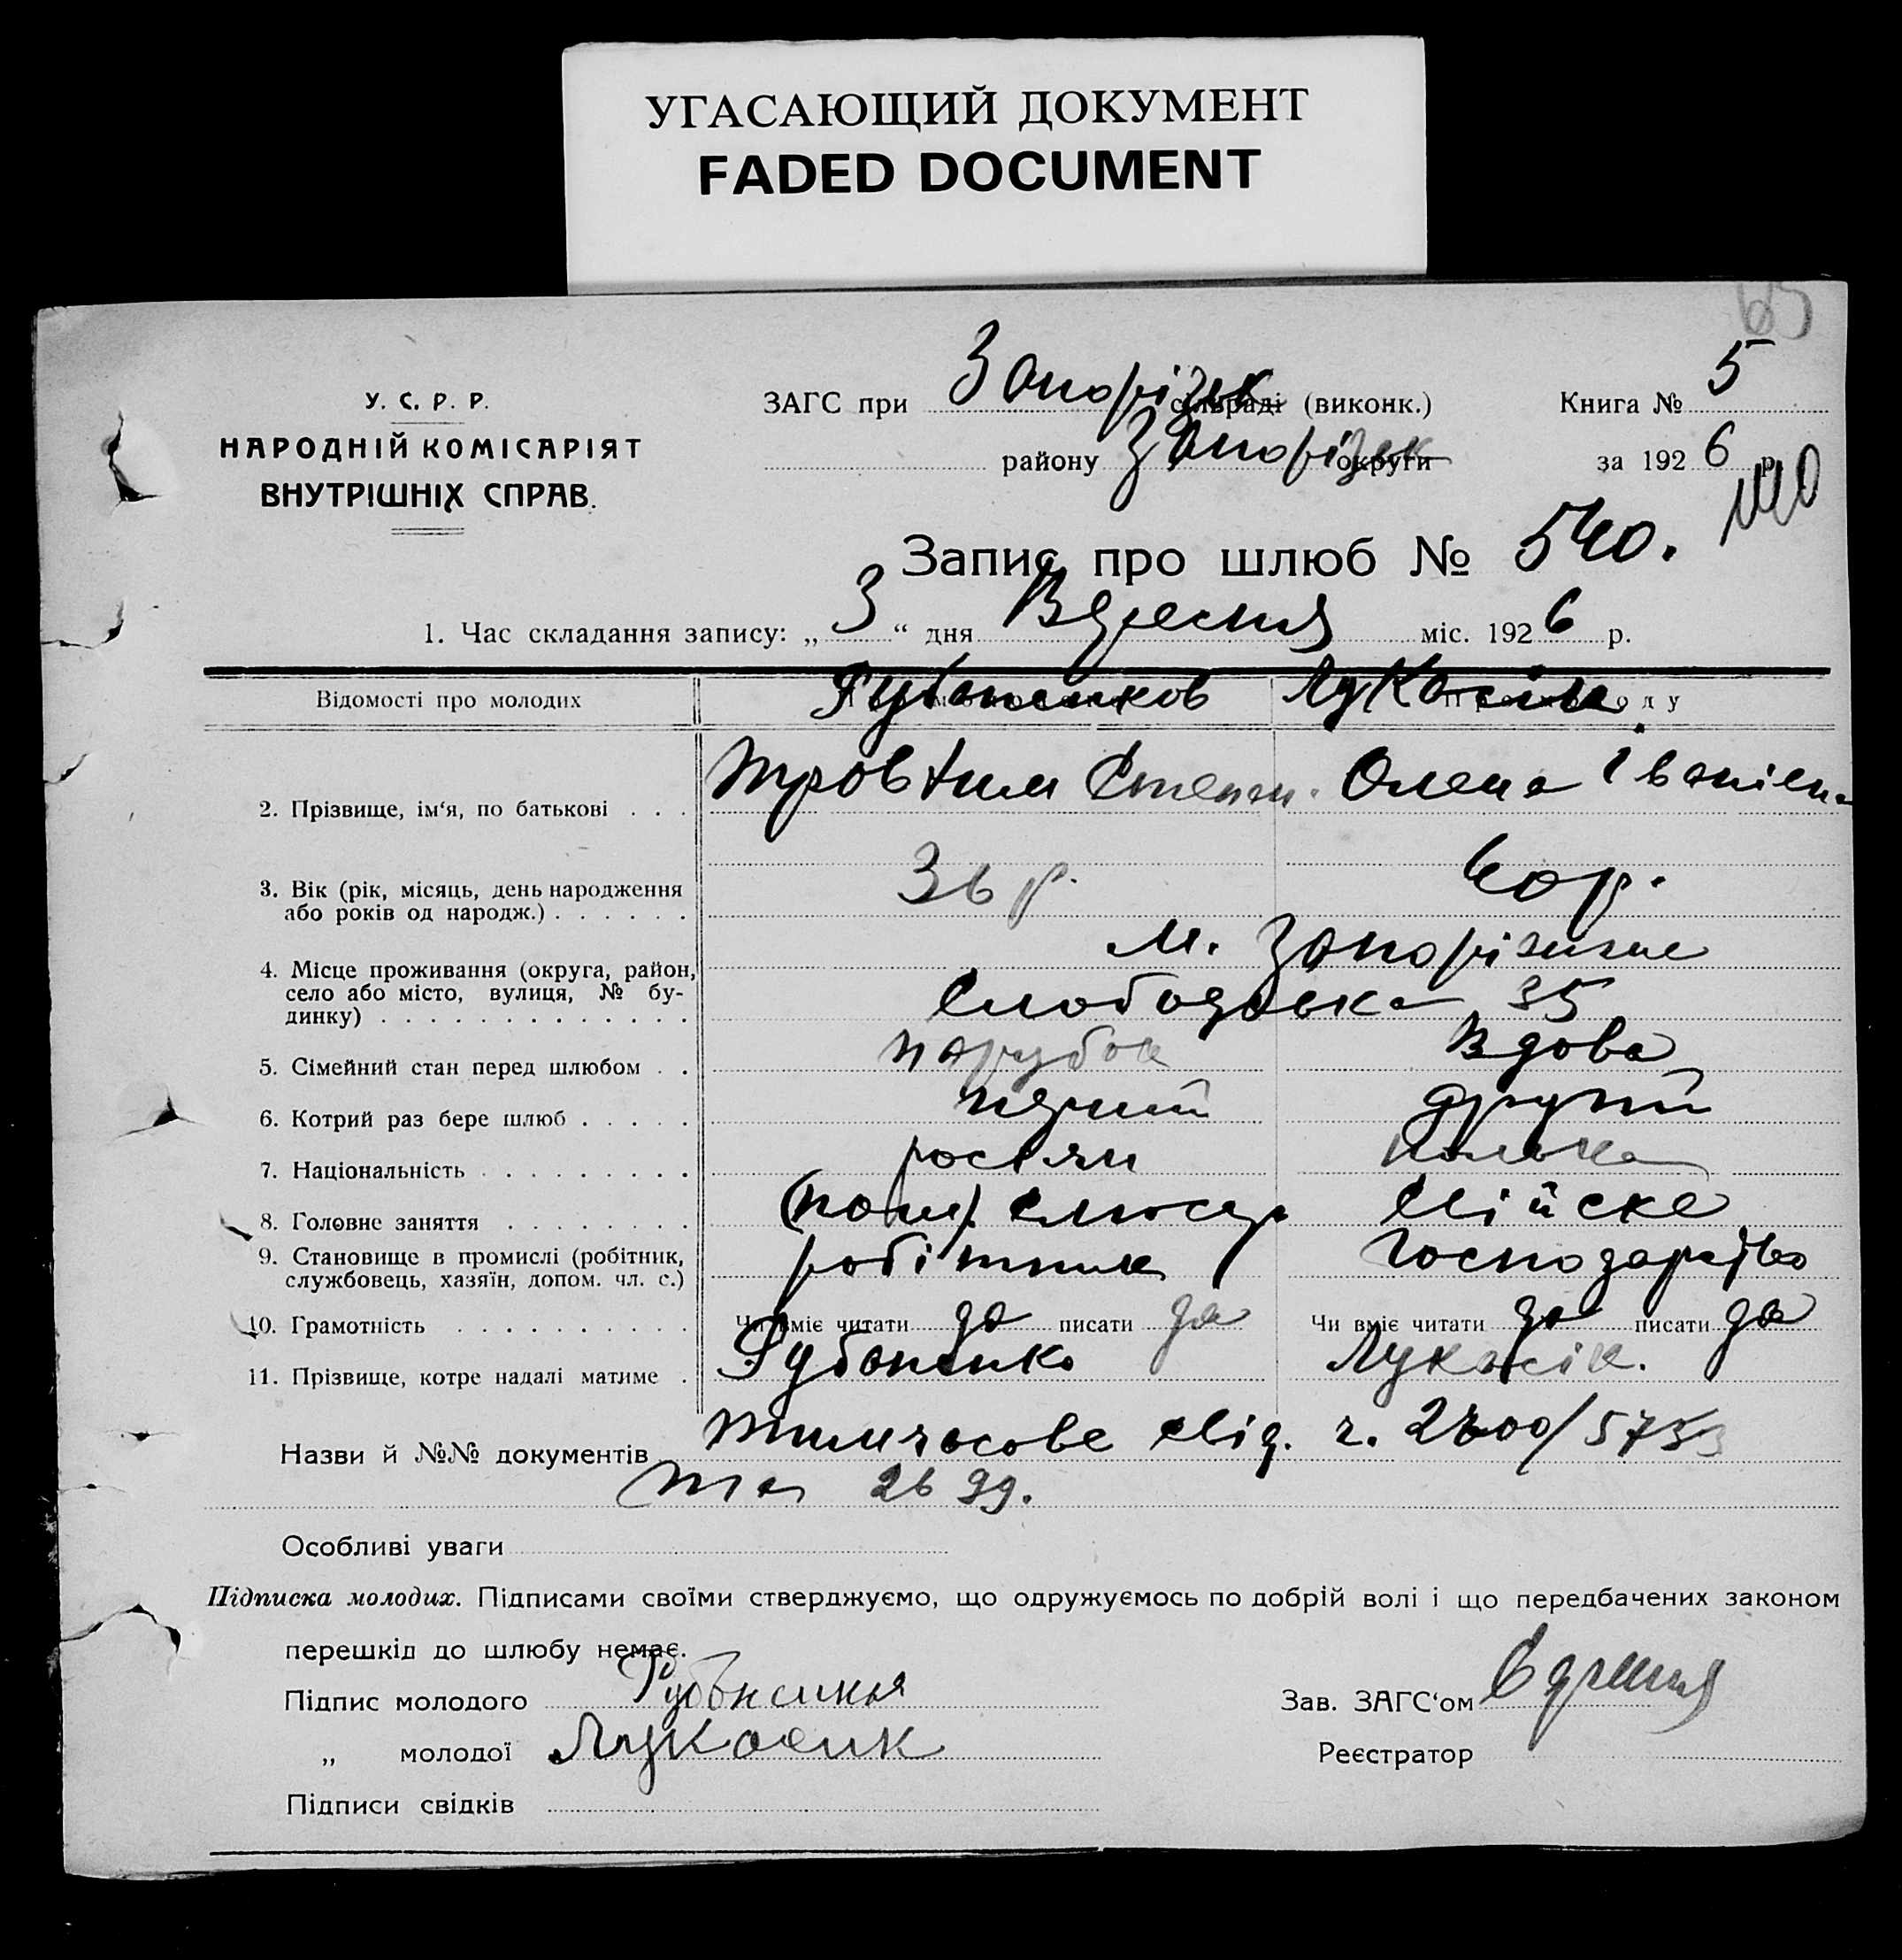 УГАСАЮЩИЙ ДОКУМЕНТ
FADED DOCUMENT
65
У. С. Р. Р.
НАРОДНІЙ КОМІСАРІЯТ
ВНУТРІШНІХ СПРАВ.
ЗАГС при Запоріжж сільраді (виконк.) Книга № 5
району Запоріжж округи за 1926 р.
Запис про шлюб № 540.
1. Час складання запису: „3“ дня Вересня міс. 1926 р.
Відомості про молодих Рубаненков Лукасік
2. Прізвище, ім‘я, по батькові . . . Трофтим Степан. Олена Іванівна
3. Вік (рік, місяць, день народження 36 р. 40 р.
або років од народж.) . . . . . .
4. Місце проживання (округа, район, м. Запоріжжє
село або місто, вулиця, № бу- Слободська 35
динку) . . . . . . . . . . . . .
5. Сімейний стан перед шлюбом . . парубок Вдова
6. Котрий раз бере шлюб . . . . . перший другий
7. Національність . . . . . . . . . росіян полька
8. Головне заняття . . . . . . . . слюсар Хатнє
9. Становище в промислі (робітник, робітник господарство
службовець, хазяїн, допом. чл. с.)
10. Грамотність . . . . . . . . . . Чи вміє читати да писати да Чи вміє читати да писати да
11. Прізвище, котре надалі матиме . Рубаненко Лукасік.
Назви й №№ документів тимчасове свід. ч. 2700/5733
та 2699.
Особливі уваги
Підписка молодих. Підписами своїми стверджуємо, що одружуємось по добрій волі і що передбачених законом
перешкід до шлюбу немає.
Підпис молодого Зав. ЗАГС‘ом
„ молодої Лукасик Реєстратор
Підписи свідків